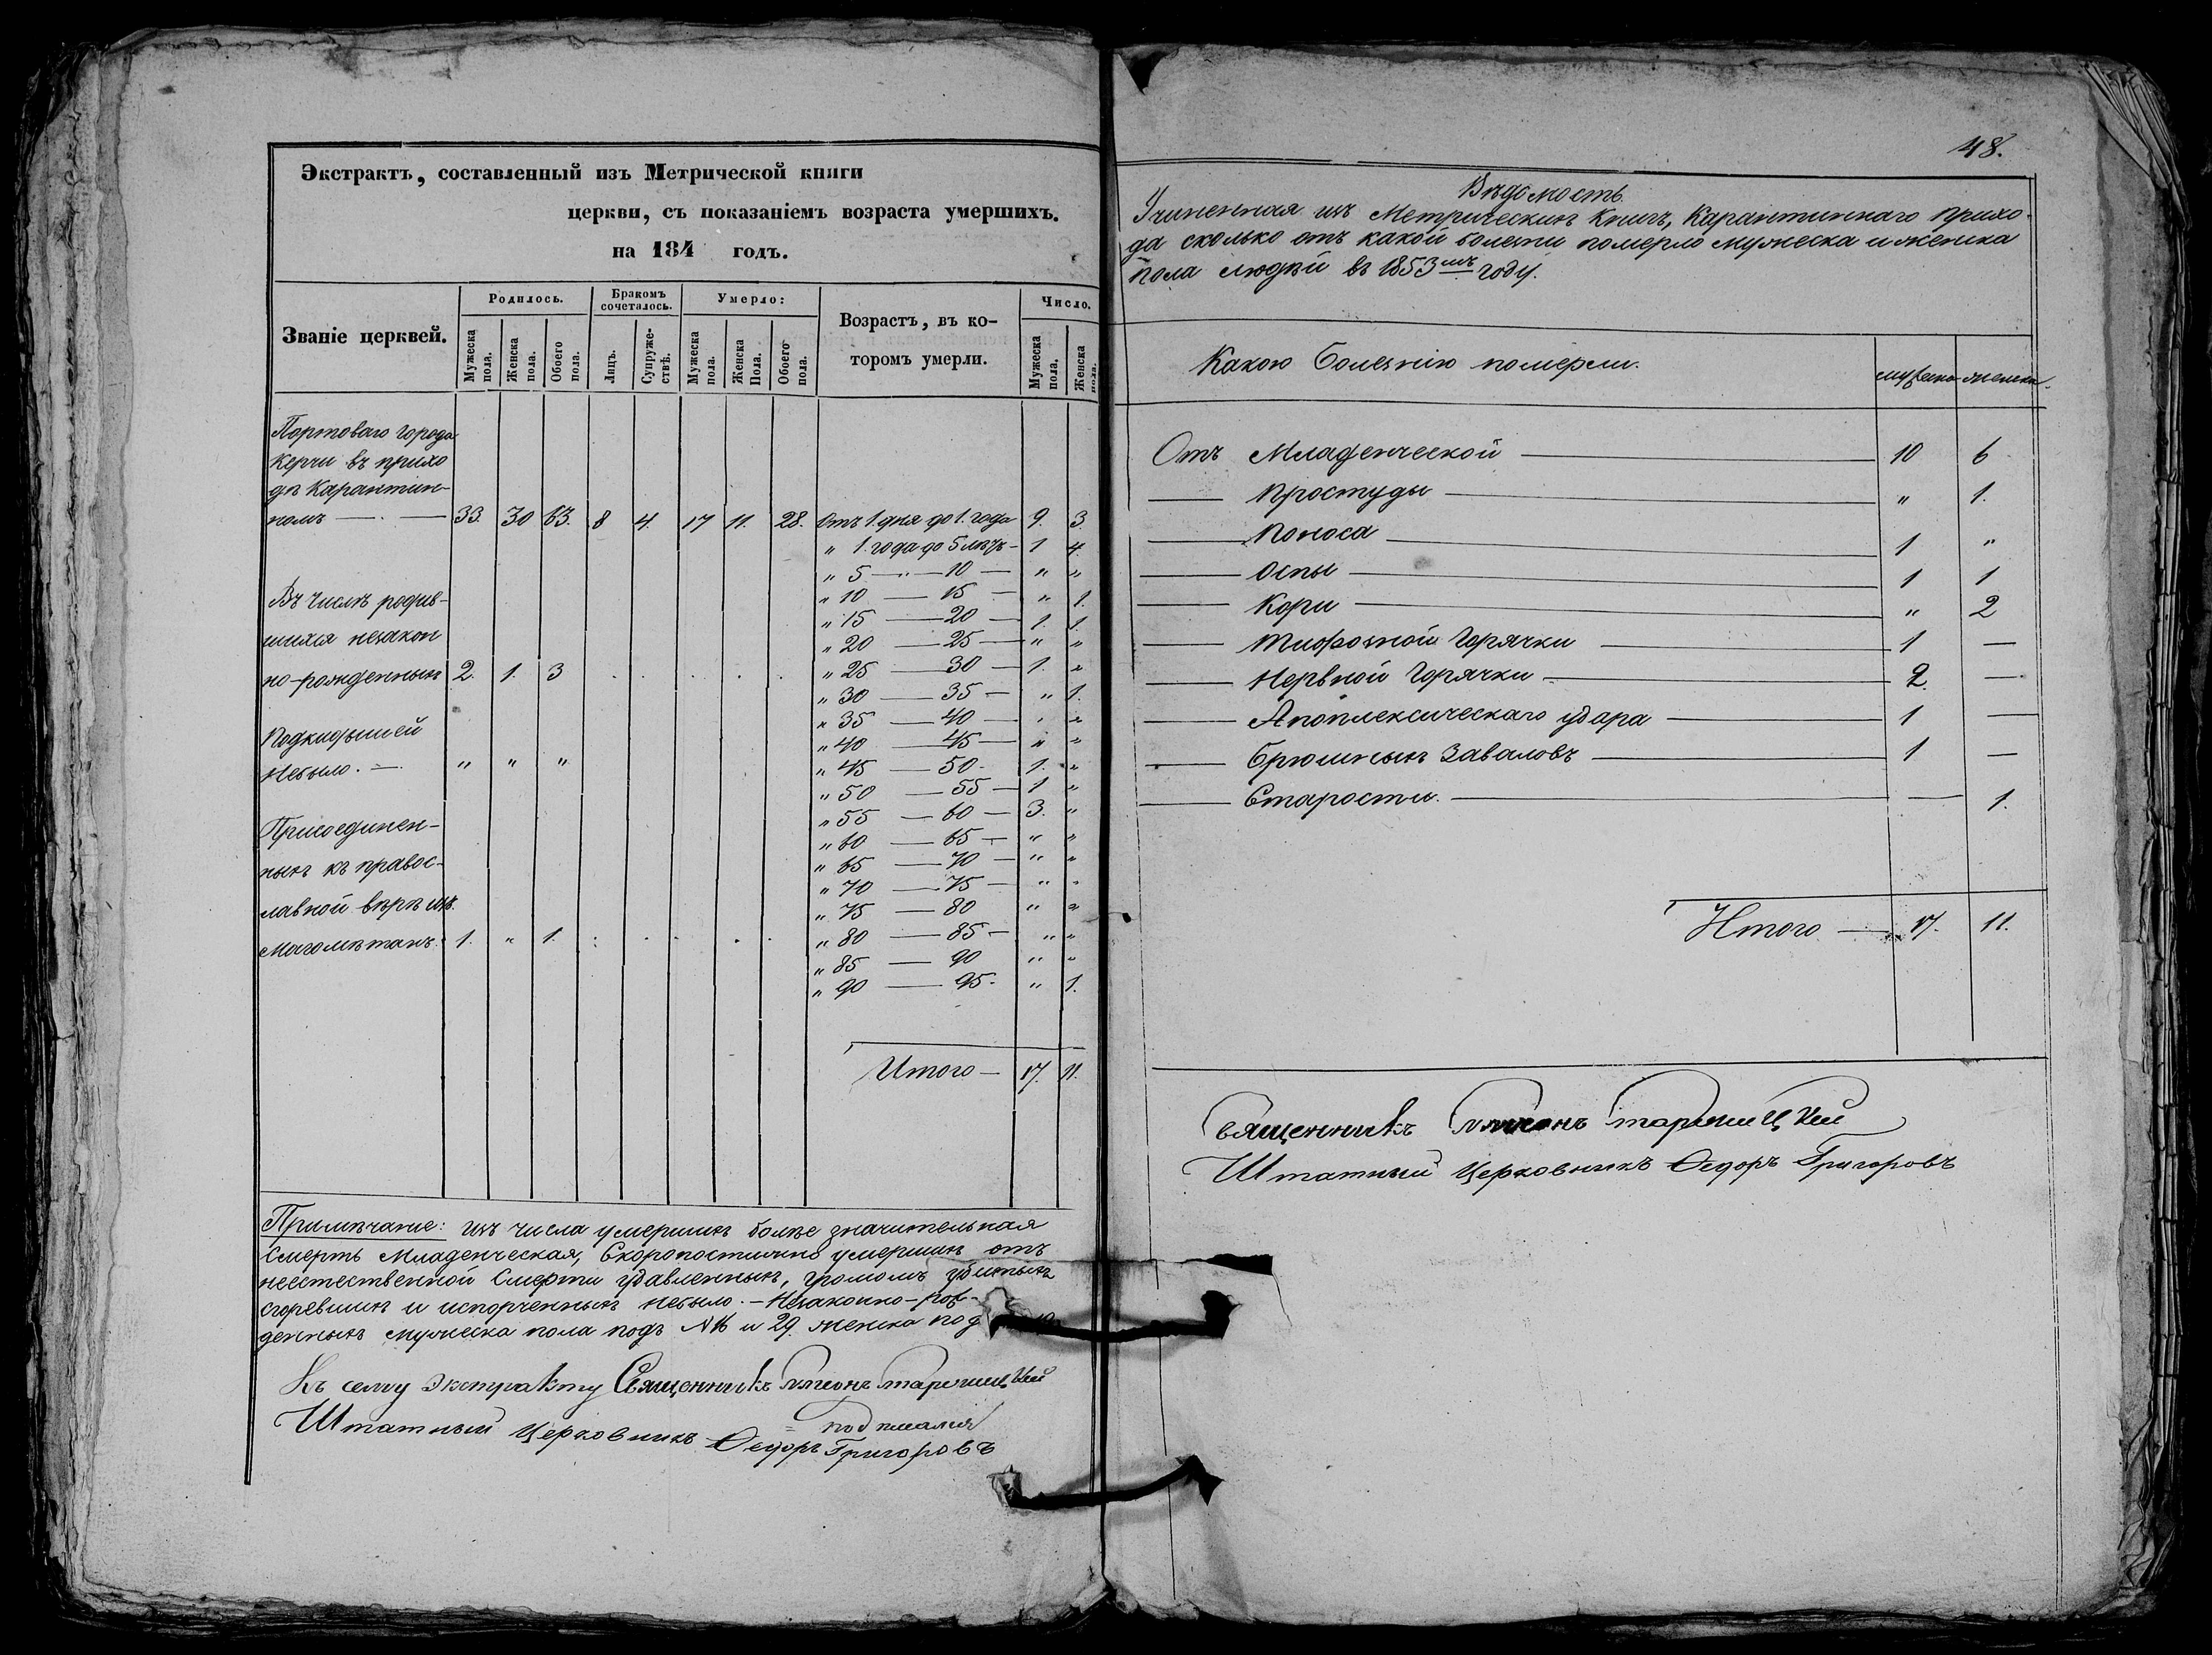 Экстрактъ, составленный изъ Метрической книги
церкви, съ показаніемъ возраста умершихъ.
на 184 годъ.
Званіе церквей.
Родилось.
Бракомъ сочеталось.
Умерло:
Возрастъ, въ ко-
торомъ умерли.
Число.
Мужеска пола.
Женска пола.
Обоего пола.
Лицъ.
Супруже-ствъ.
Мужеска пола.
Женска Пола.
Обоего пола.
Мужеска пола.
Женска пола.
Портоваго города
Керчи въ прихо
дѣ Карантин-
номъ — · — 33. 30 63. 8 4. 17 11. 28. Отъ 1. дня до 1. года 9. 3.
„ 1. года до 5 лѣтъ — 1 4.
„ 5 — „ — 10 — „ „
„ 10 — 15 — „ 1.
„ 15 — 20 — 1. 1.
„ 20 — 25 — „ „
„ 25 — 30 — 1. „
„ 30 — 35 — „ 1.
„ 35 — 40 — „ „
„ 40 — 45 — „ „
„ 45 — 50 - 1. „
„ 50 — 55 — 1 „
„ 55 — 60 — 3. „
„ 60 — 65 — „ „
„ 65 — 70 — „ „
„ 70 — 75 — „ „
„ 75 — 80 „ „
„ 80 — 85 — „ „
„ 85 — 90 „ „
„ 90 — 95 - „ 1.
Итого — 17. 11.
Въ числѣ родив-
шихся незакон
но-рожденныхъ 2. 1. 3
Подкидышей
небыло. — „ „ „
Присоединен-
ныхъ къ правос-
лавной вѣрѣ изъ
магометанъ. 1. „ 1.
Примѣчаніе: изъ числа умершихъ болѣе значительная
смерть Младенческая, Скоропостижно умершихъ отъ
неестественной Смерти удавленныхъ, громомъ убитыхъ
сгоревшихъ и испорченныхъ небыло. — Незаконно-рож-
денныхъ мужеска пола подъ N 16 и 29. женска под
Къ сему Экстракту Священникъ Симеонъ
подписался
Штатный Церковникъ Ѳедоръ Григоровъ
48.
Вѣдомость.
Учиненная изъ Метрическихъ Книгъ, Карантиннаго прихо-
да сколько отъ какой болезни померло мужеска и женска
пола людѣй въ 1853мъ году.
Какою Болезнію померли. мужеска женска.
Отъ Младенческой — 10 6
— Простуды — „ 1.
— Поноса — 1 „
— Оспы — 1 1
— Кори — „ 2
— Тифозной Горячки — 1 —
— Нервной Горячки — 2. —
— Апоплексическаго удара — 1 —
— Брюшныхъ Заваловъ — 1 —
— Старости. — — 1.
Итого — 17. 11.
Священникъ Симеонъ
Штатный Церковникъ Ѳедоръ Григоровъ